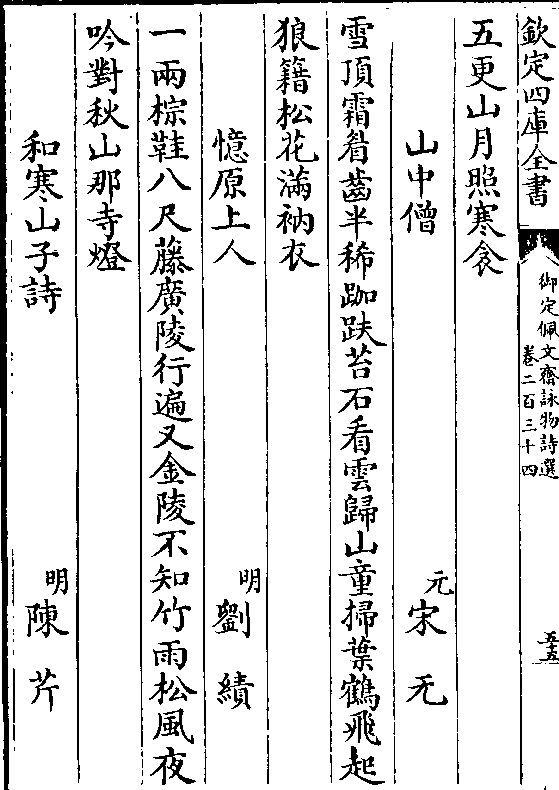 欽定四庫全書
御定佩文齋詠物詩選
卷二百三十四
五十五
五更山月照寒衾
山中僧
元
宋无
雪頂霜眉齒半稀跏趺苔石看雲歸山童掃葉鶴飛起
狼籍松花滿衲衣
憶原上人
明
劉績
一兩棕鞋八尺藤廣陵行遍又金陵不知竹雨松風夜
吟對秋山那寺燈
和寒山子詩
明
陳芹